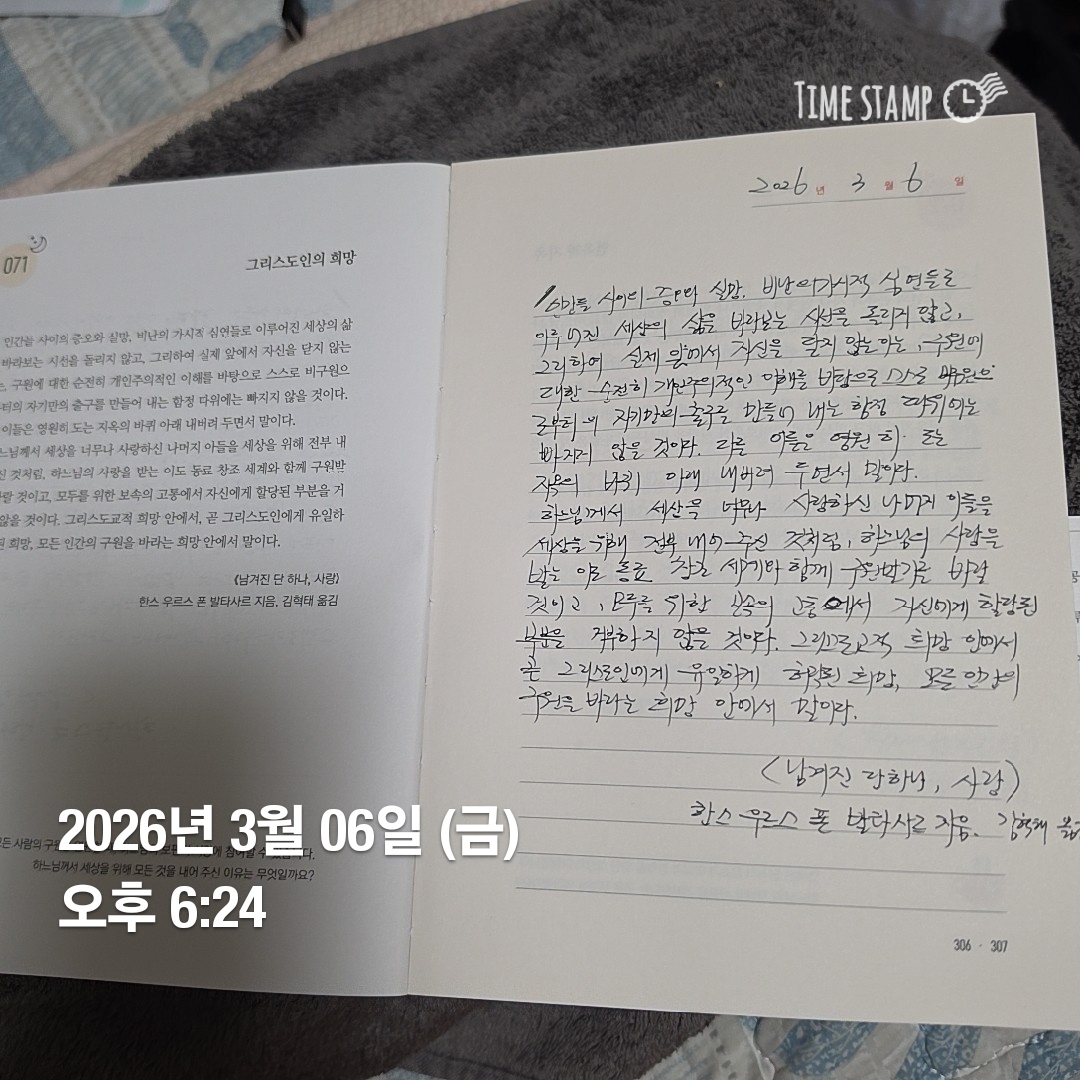 TIME STAMP
071
그리스도인의 희망
인간들 사이의 증오와 실망, 비난의 가시적 심연들로 이루어진 세상의 삶
바라보는 시선을 돌리지 않고, 그리하여 실제 앞에서 자신을 닫지 않는
구원에 대한 순전히 개인주의적인 이해를 바탕으로 스스로 비구원으
터의 자기만의 출구를 만들어 내는 함정 따위에는 빠지지 않을 것이다.
이들은 영원히 도는 지옥의 바퀴 아래 내버려 두면서 말이다.
느님께서 세상을 너무나 사랑하신 나머지 아들을 세상을 위해 전부 내
신 것처럼, 하느님의 사랑을 받는 이도 동료 창조 세계와 함께 구원받
랄 것이고, 모두를 위한 보속의 고통에서 자신에게 할당된 부분을 거
않을 것이다. 그리스도교적 희망 안에서, 곧 그리스도인에게 유일하
된 희망, 모든 인간의 구원을 바라는 희망 안에서 말이다.
《남겨진 단 하나, 사랑》
한스 우르스 폰 발타사르 지음, 김혁태 옮김
모든 사람의 구
에 참여할 수 있습니다.
하느님께서 세상을 위해 모든 것을 내어 주신 이유는 무엇일까요?
2026년 3월 6일
인간들 사이의 증오와 실망, 비난의 가시적 심연들로
이루어진 세상의 삶을 바라보는 시선을 돌리지 않고,
그리하여 실제 앞에서 자신을 닫지 않는 이는, 구원에
대한 순전히 개인주의적인 이해를 바탕으로 스스로 비구원으
로부터의 자기만의 출구를 만들어 내는 함정 따위에는
빠지지 않을 것이다. 다른 이들은 영원히 도는
지옥의 바퀴 아래 내버려 두면서 말이다.
하느님께서 세상을 너무나 사랑하신 나머지 아들을
세상을 위해 전부 내어 주신 것처럼, 하느님의 사랑을
받는 이도 동료 창조 세계와 함께 구원받기를 바랄
것이고, 모두를 위한 보속의 고통에서 자신에게 할당된
부분을 거부하지 않을 것이다. 그리스도교적 희망 안에서
곧 그리스도인에게 유일하게 허락된 희망, 모든 인간의
구원을 바라는 희망 안에서 말이다.
(남겨진 단하나, 사랑)
한스 우르스 폰 발타사르 지음. 김혁태 옮
306 · 307
2026년 3월 06일 (금)
오후 6:24